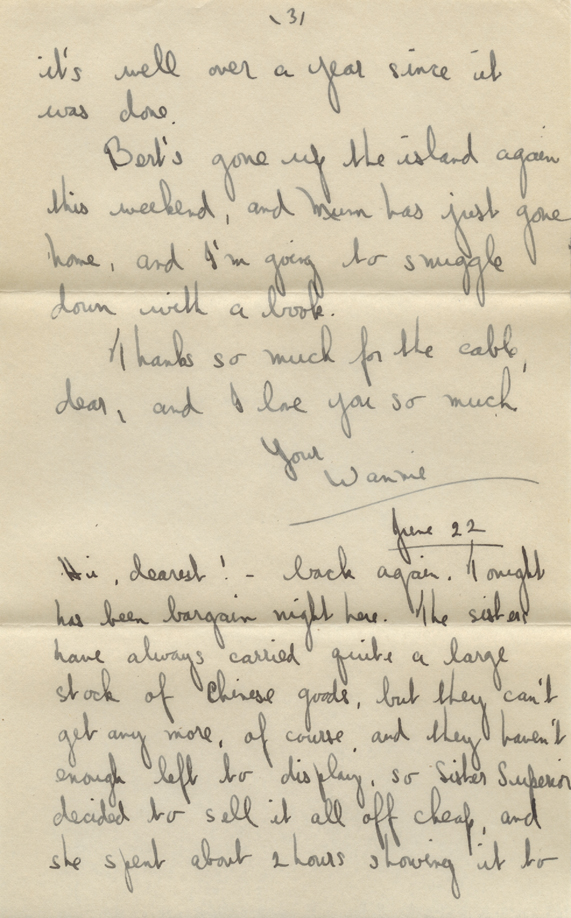 (3)
it's well over a year since it
was done.
Bert's gone up the island again
this weekend, and Mum has just gone
home, and I'm going to snuggle
down with a book.
Thanks so much for the cable,
dear, and I love you so much
Your
Wannie
June 22
Hi, dearest! - back again. Tonight
has been bargain night here. The sisters
have always carried quite a large
stock of Chinese goods, but they can't
get any more, of course, and they haven't
enough left to display, so Sister Superior
decided to sell it all off cheap, and
she spent about 2 hours showing it to